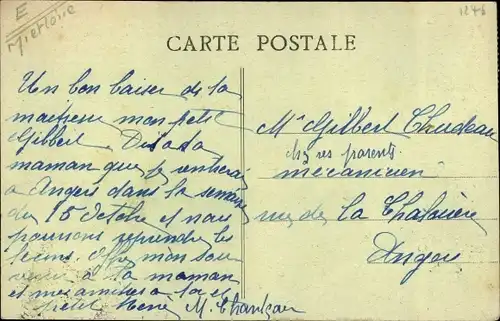 E
Mietlorie
1246
CARTE POSTALE
Un bon baiser de ta
mon petit
Gilbert. Dis à ta
maman que je rentrerai
à Angers dans la semaine
du 15 Octobre et nous
pourrons reprendre les
leçons. Offre mon sou
venir à ta maman
et mes amitiés à toi et
petit René M. Chankeau
Mr Gilbert Chudeau
chz ses parents
mécanicien
rue de la Chalouère
Angers